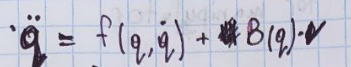 q̈ = f(q, q̇) + B(q)·v